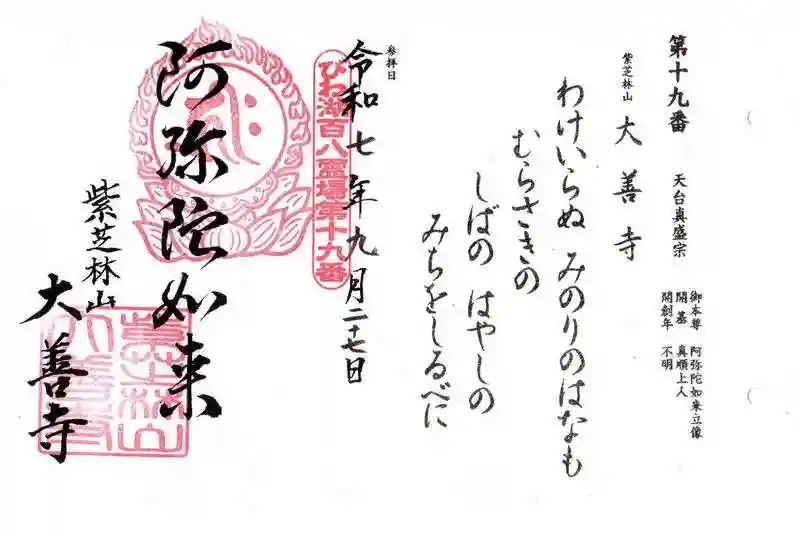 第十九番
天台真盛宗
御本尊 阿弥陀如来立像
開基 真順上人
開創年 不明
紫芝林山
大善寺
わけいらぬ みのりのはなも
むらさきの
しばの はやしの
みちをしるべに
参拝日
令和七年九月二十七日
びわ湖百八霊場第十九番
阿弥陀如来
紫芝林山
大善寺